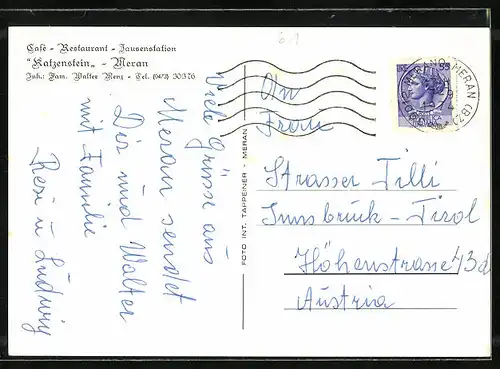 Café - Restaurant - Jausenstation
"Katzenstein„ - Meran
Inh.: Fam. Walter Menz - Tel. (0473) 30376
61
Viele Grüsse aus
Meran sendet
Dir und Walter
mit Familie
Resi u Ludwig
FOTO INT. TAPPEINER - MERAN
MERANO-MERAN (BZ)
55
An
Frau
Strasser Tilli
Innsbruck - Tirol
Höhenstrasse
Austria